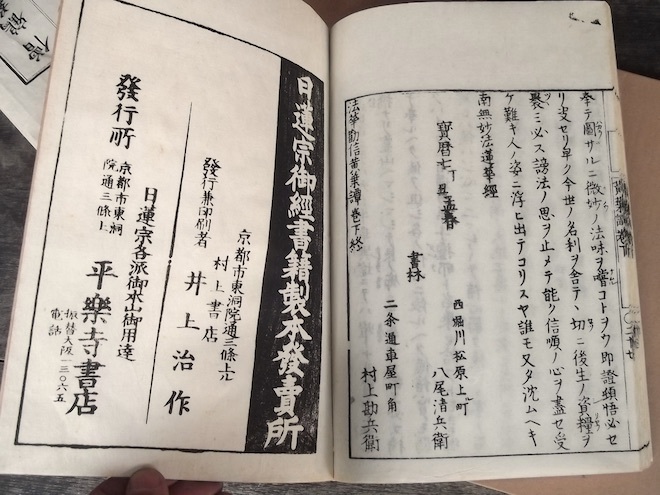 奉テ圖サルニ微妙ノ法味ヲ嘗コトヲウ即證頓悟必セ
リ安セリ早ク今世ノ名利ヲ舍テ丶切ニ後生ノ資糧ヲ
裹ミ必ス謗法ノ思ヲ止メテ能ク信順ノ心ヲ盡セ受
ケ難キ人ノ姿ニ浮ヒ出テコリスヤ誰モ又タ沈ムヘキ
南無妙法蓮華經
寳曆七丁丑孟春
書林
西堀川松原上ル町
八尾清兵衛
二条通車屋町角
村上勘兵衛
法華勸信黄葉譚巻下終
日蓮宗御經書籍製本發賣所
京都市東洞院通三條上ル
村上書店
發行兼印刷者
井上治作
日蓮宗各派御本山御用達
發行所
京都市東洞
院通三條上
平樂寺書店
振替大阪一三〇六五
電話